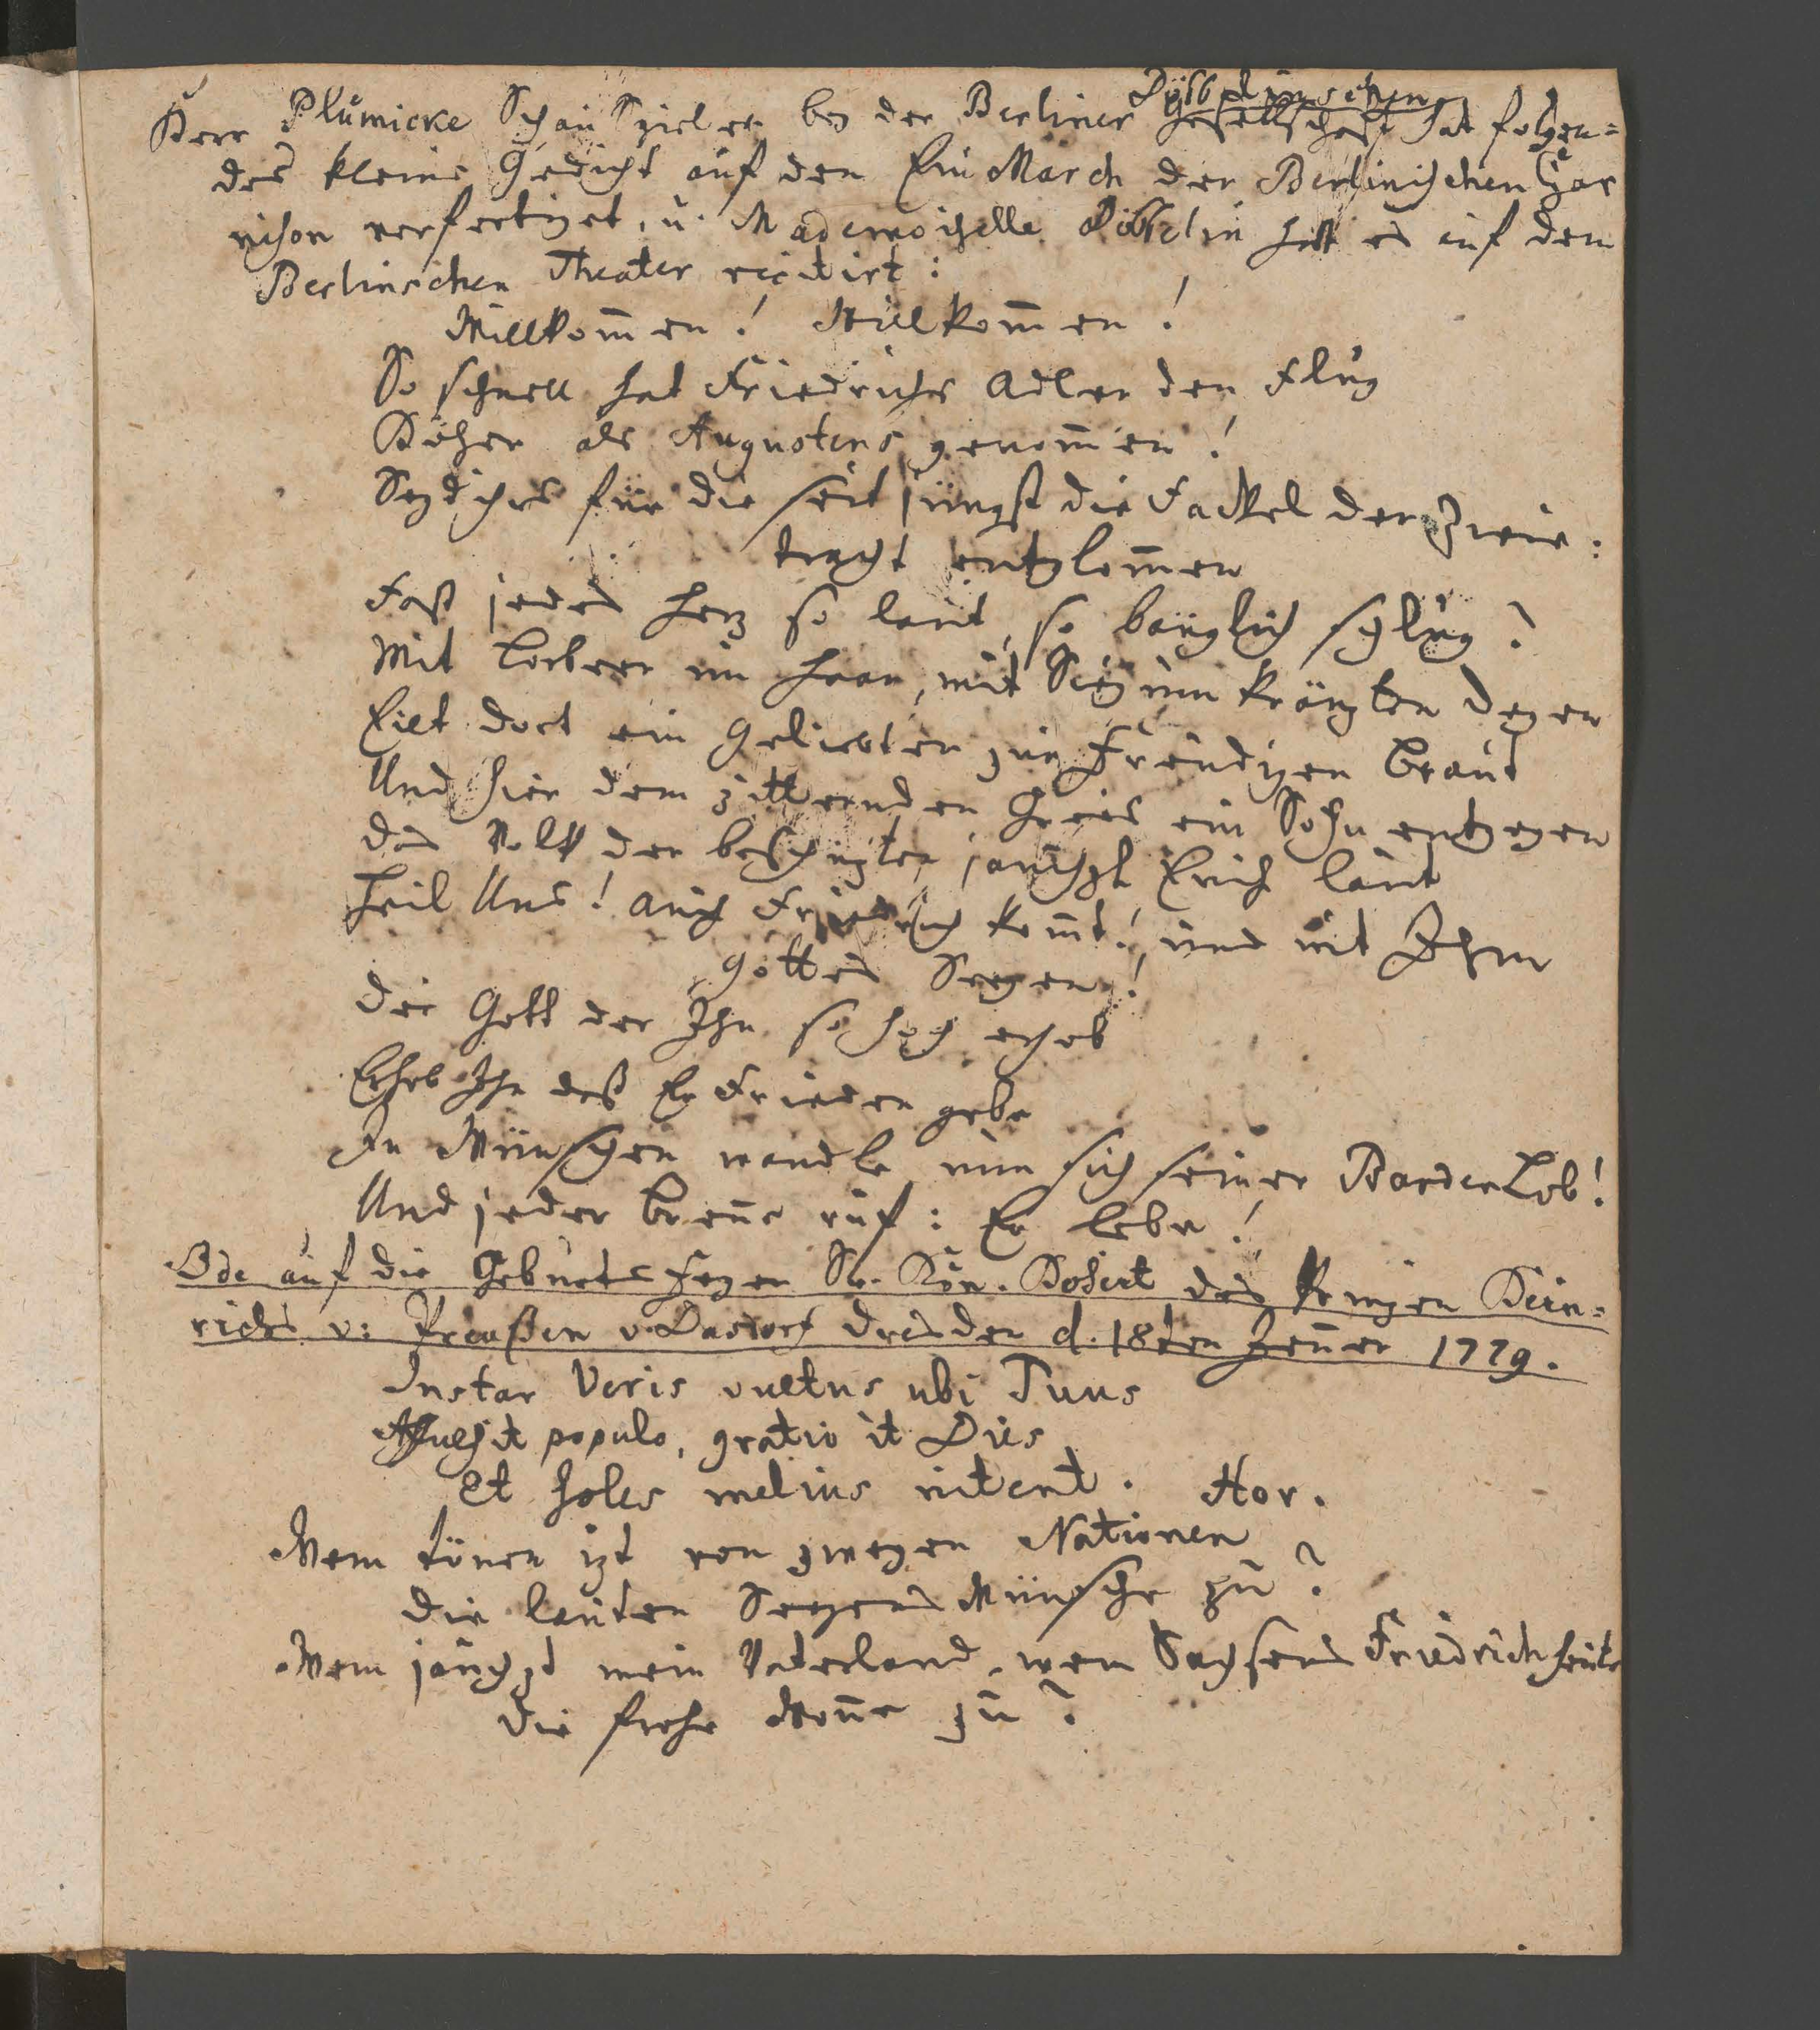 Döbbelinschen
Herr Plümicke Schauspieler bey der Berliner Gesellschaft hat folgen=
des kleine Gedicht auf den EinMarch der Berlinischen Gar
nison verfertiget, u. Mademoiselle Döbbelin hatt es auf dem
Berlinschen Theater recitirt:
Willkom̄en! Willkom̄en!
So schnell hat Friedrichs Adler den Flug
Höher als Augustens genom̄en!
Seyd ihrs für die seit jüngst die Fackel der Zwie=
tracht entglom̄en
Fast jedes Herz so laut, so bänglich schlug?
Mit Lorbeer im Haar, mit Sieg umkränzten Degen
Eilt dort ein Geliebter zur Freudigen Braut
Und hier dem zitternden Greis ein Sohn entgegen
Das Volk der beschüzter jauchzt Euch laut
Heil Uns! auch Friedrich kom̄t! und mit Ihm
Gottes Seegen!
Der Gott der Ihn so hoch erhob
Erhob Ihn daß Er Frieden gebe
In Wünschen wandle nun sich seiner Barden Lob!
Und jeder Bren̄e ruf: Er lebe!
Ode auf die Geburts Feyer Sr. Kön. Hoheit des Prinzen Hein=
richs v: Preußen v. Dasdorf Dresden d. 18ten Jen̄er 1779.
Instar Veris vultus ubi Tuus
Affulsit populo, gratio it Dies
Et soles melius nitent. Hor.
Wem tönen izt von zweyen Nationen
Die lauten Seegens Wünsche zu?
Wem jauchzt mein Vaterland, wem Sachsens Friedrich heute
Die frohe Won̄e zu?